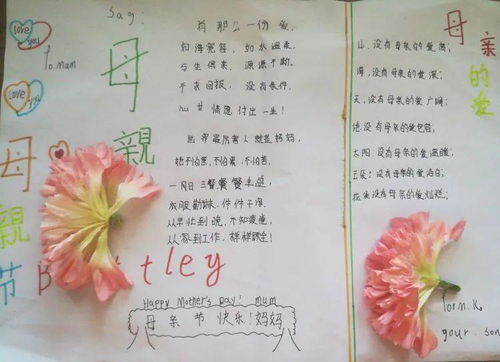 love
you
To. mum
love
you
母親節
Say:
母親
有那么一份爱,
如海宽容,如水温柔,
与生俱来,源源不断。
不求回报,没有条件,
心甘情愿付出一生!
世界最厉害人就是妈妈,
她不怕黑,不怕累,不怕苦,
一日三餐餐餐美味,
衣服勤妹,件件干净,
从早忙到晚,不知疲惫,
从家到工作,样样顾全!
tley
Happy Mother's Day! mum
母亲节快乐!妈妈
母亲的爱
山,没有母亲的爱高;
海,没有母亲的爱深;
天,没有母亲的爱广阔;
地,没有母亲的爱包容;
太阳,没有母亲的爱温暖;
云朵,没有母亲的爱洁白;
花朵没有母亲的爱灿烂;
your son